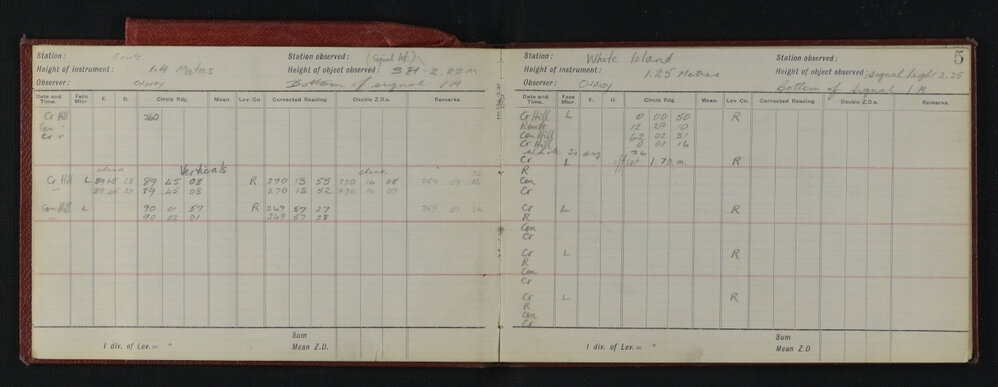 Station : Route
Station observed : (Signal ht.)
Height of instrument : 1.4 Metres
Height of object observed : SH-2.25 M
Observer : OTWAY
Bottom of signal 1 M
Date and Time. Face Micr E. O. Circle Rdg. Mean. Lev. Cn. Corrected Reading. Double Z.D.s. Remarks.
Cr Hill 360
Con "
Cr "
Verticals
check
Cr Hill L 89 45 08 R 270 13 55 270 14 08
" 89 45 03 270 13 52 270 14 07
Con Hill L 90 01 57 R 269 57 27
" 90 02 01 269 57 28
Sum
1 div. of Lev.= " Mean Z.D.
5
Station : White Island
Station observed :
Height of instrument : 1.25 Metres
Height of object observed : signal height 2.25
Observer : OTWAY
Bottom of signal 1 M
Date and Time. Face Micr E. O. Circle Rdg. Mean. Lev Cn. Corrected Reading. Double Z.D.s. Remarks.
Cr Hill L 0 00 50 R
Route 12 29 10
Con Hill 62 02 31
Cr Hill 0 01 16
White Is
Cr L offset 1.72 m. R
R
Con
Cr
Cr L R
R
Con
Cr
Cr L R
R
Con
Cr
Cr L R
R
Con
Cr
Sum
1 div. of Lev.= " Mean Z.D